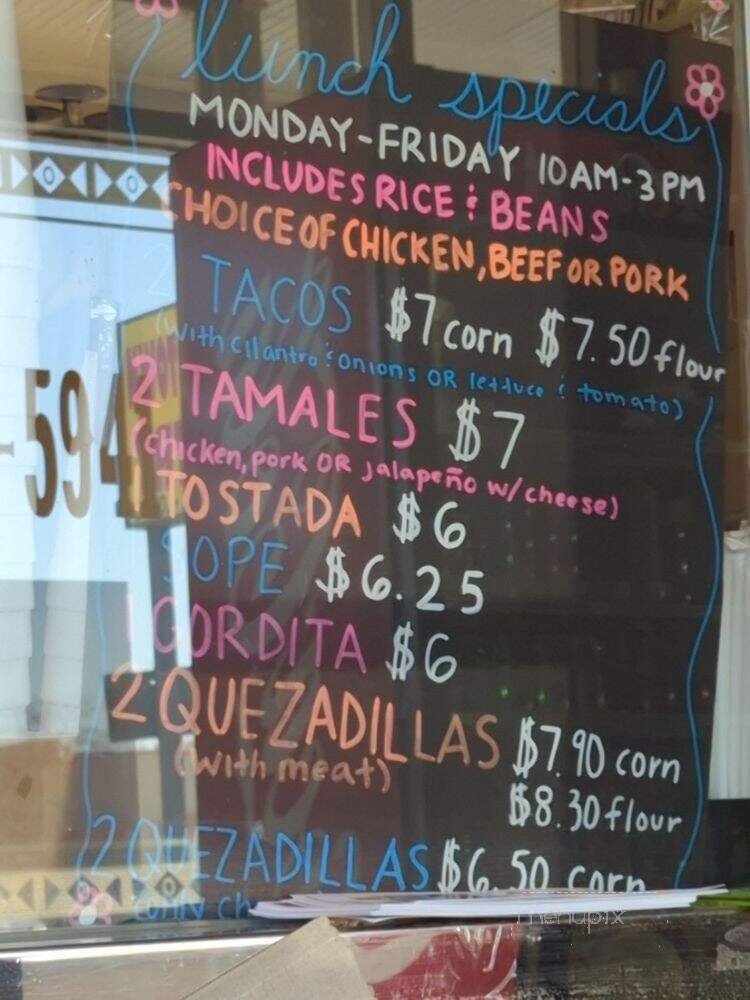 lunch specials
MONDAY-FRIDAY 10AM-3PM
INCLUDES RICE & BEANS
CHOICE OF CHICKEN, BEEF OR PORK
2 TACOS $7 corn $7.50 flour
(with cilantro & onions OR lettuce & tomato)
2 TAMALES $7
(chicken, pork OR jalapeño w/cheese)
1 TOSTADA $6
SOPE $6.25
1 GORDITA $6
2 QUEZADILLAS $7.90 corn
(with meat) $8.30 flour
2 QUEZADILLAS $6.50 corn
-594
menupix